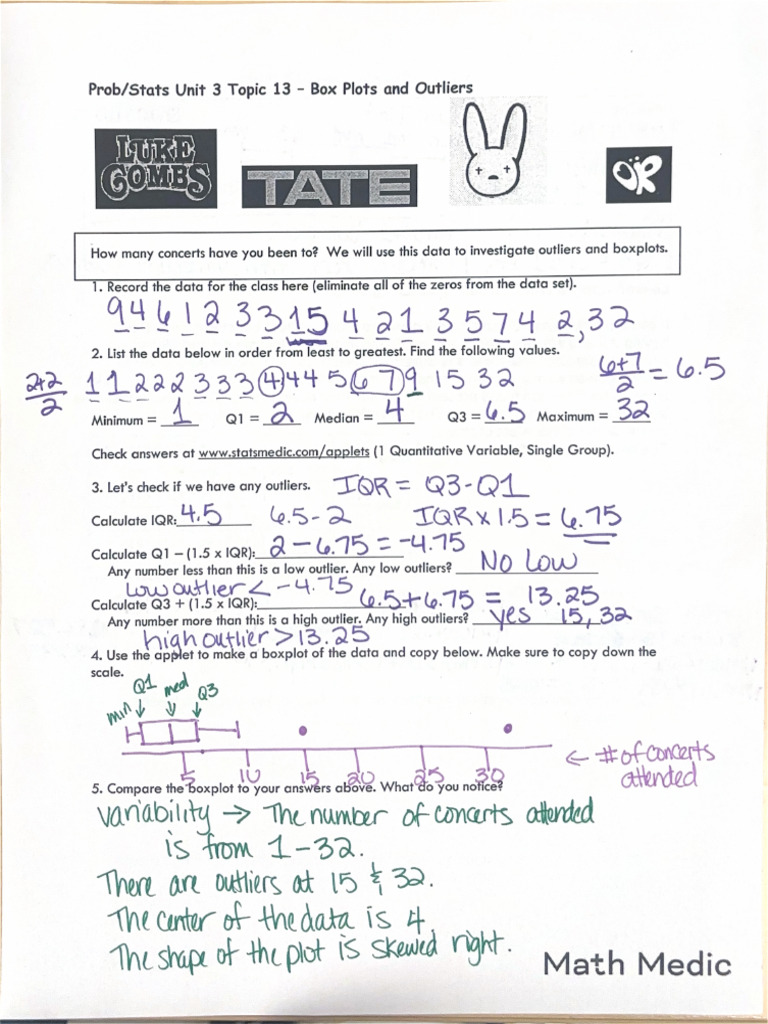 Prob/Stats Unit 3 Topic 13 – Box Plots and Outliers
LUKE COMBS
TATE
OR
How many concerts have you been to? We will use this data to investigate outliers and boxplots.
1. Record the data for the class here (eliminate all of the zeros from the data set).
9 4 6 1 2 3 3 15 4 2 1 3 5 7 4 2, 32
2. List the data below in order from least to greatest. Find the following values.
2+2/2 1 1 2 2 2 3 3 3 4 4 4 5 6 7 9 15 32 6+7/2 = 6.5
Minimum = 1 Q1 = 2 Median = 4 Q3 = 6.5 Maximum = 32
Check answers at www.statsmedic.com/applets (1 Quantitative Variable, Single Group).
3. Let's check if we have any outliers. IQR = Q3-Q1
Calculate IQR: 4.5 6.5-2 IQR x 1.5 = 6.75
Calculate Q1 – (1.5 x IQR): 2 - 6.75 = -4.75
Any number less than this is a low outlier. Any low outliers? No low
low outlier < -4.75
Calculate Q3 + (1.5 x IQR): 6.5+6.75 = 13.25
Any number more than this is a high outlier. Any high outliers? yes 15, 32
high outlier > 13.25
4. Use the applet to make a boxplot of the data and copy below. Make sure to copy down the
scale.
min Q1 med Q3
5 10 15 20 25 30 ← # of concerts
attended
5. Compare the boxplot to your answers above. What do you notice?
Variability → The number of concerts attended
is from 1-32.
There are outliers at 15 & 32.
The center of the data is 4
The shape of the plot is skewed right.
Math Medic